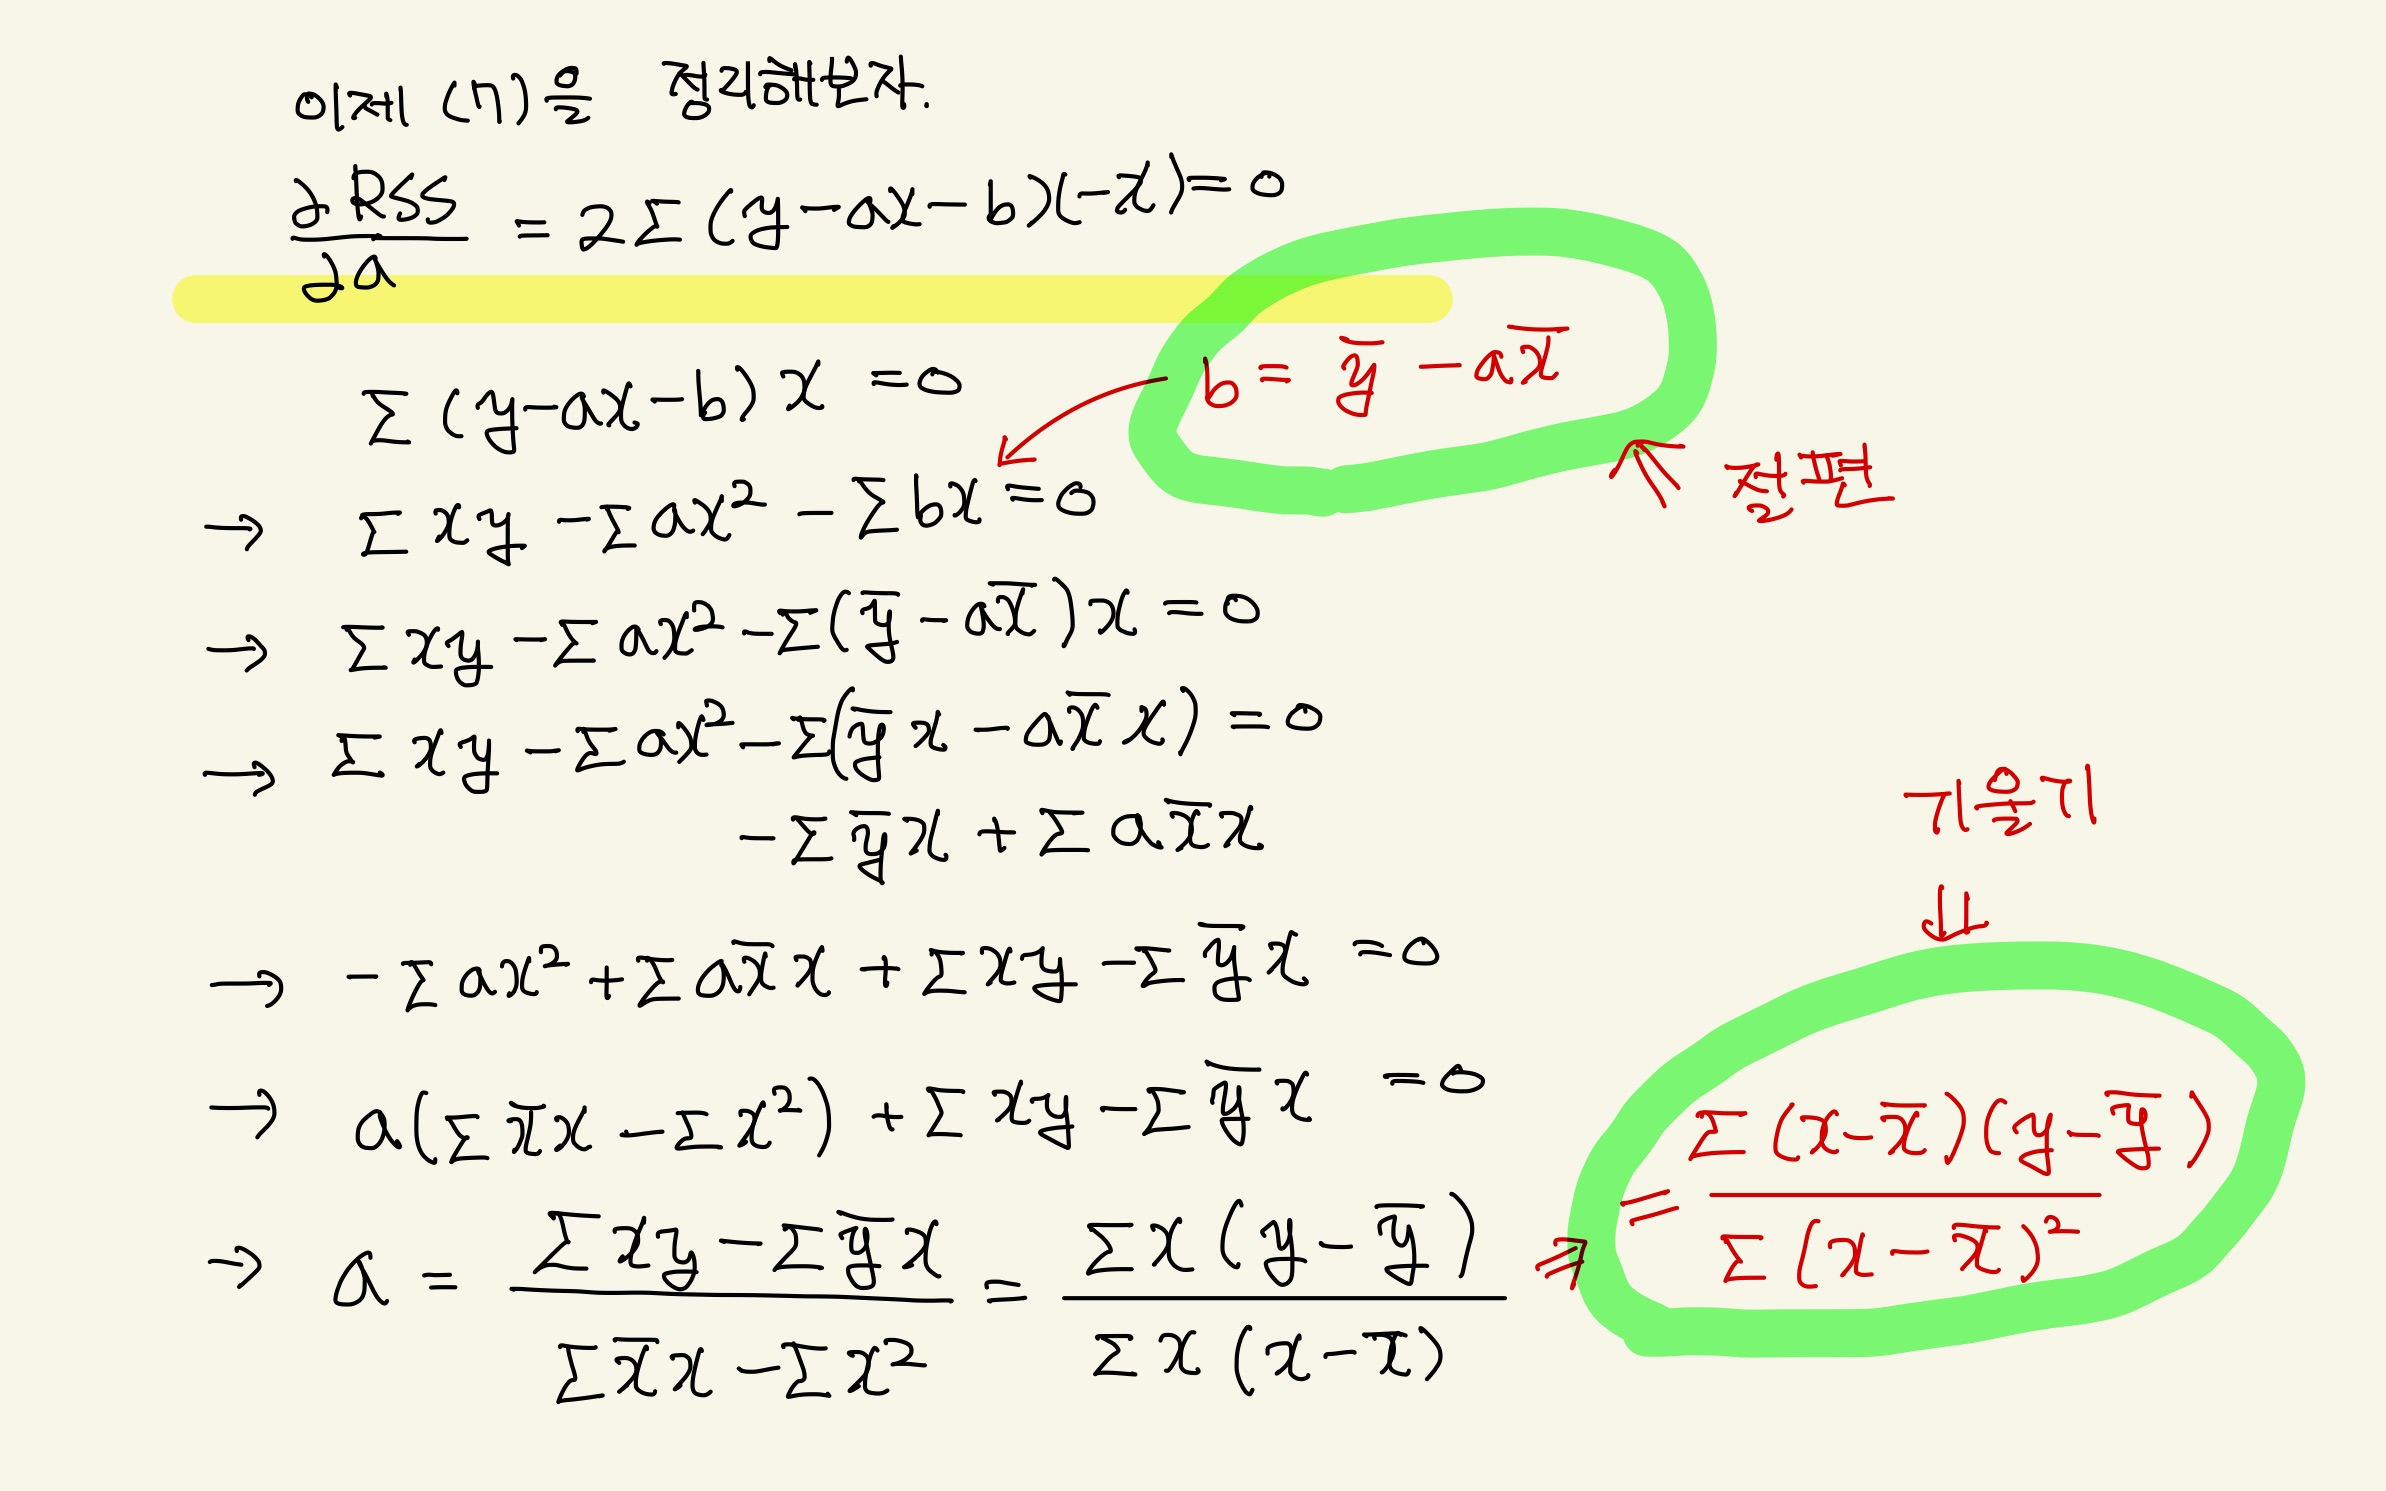 이제 (ㄱ)을 정리해보자.
∂RSS/∂a = 2Σ(y-ax-b)(-x)=0
b = ȳ - ax̄
Σ(y-ax-b)x = 0
절편
→ Σxy - Σax² - Σbx = 0
→ Σxy - Σax² - Σ(ȳ - ax̄)x = 0
→ Σxy - Σax² - Σ(ȳx - ax̄x) = 0
- Σȳx + Σax̄x
기울기
→ - Σax² + Σax̄x + Σxy - Σȳx = 0
→ a(Σx̄x - Σx²) + Σxy - Σȳx = 0
→ a = (Σxy - Σȳx)/(Σx̄x - Σx²) = Σx(y-ȳ)/Σx(x-x̄)
= Σ(x-x̄)(y-ȳ)/Σ(x-x̄)²